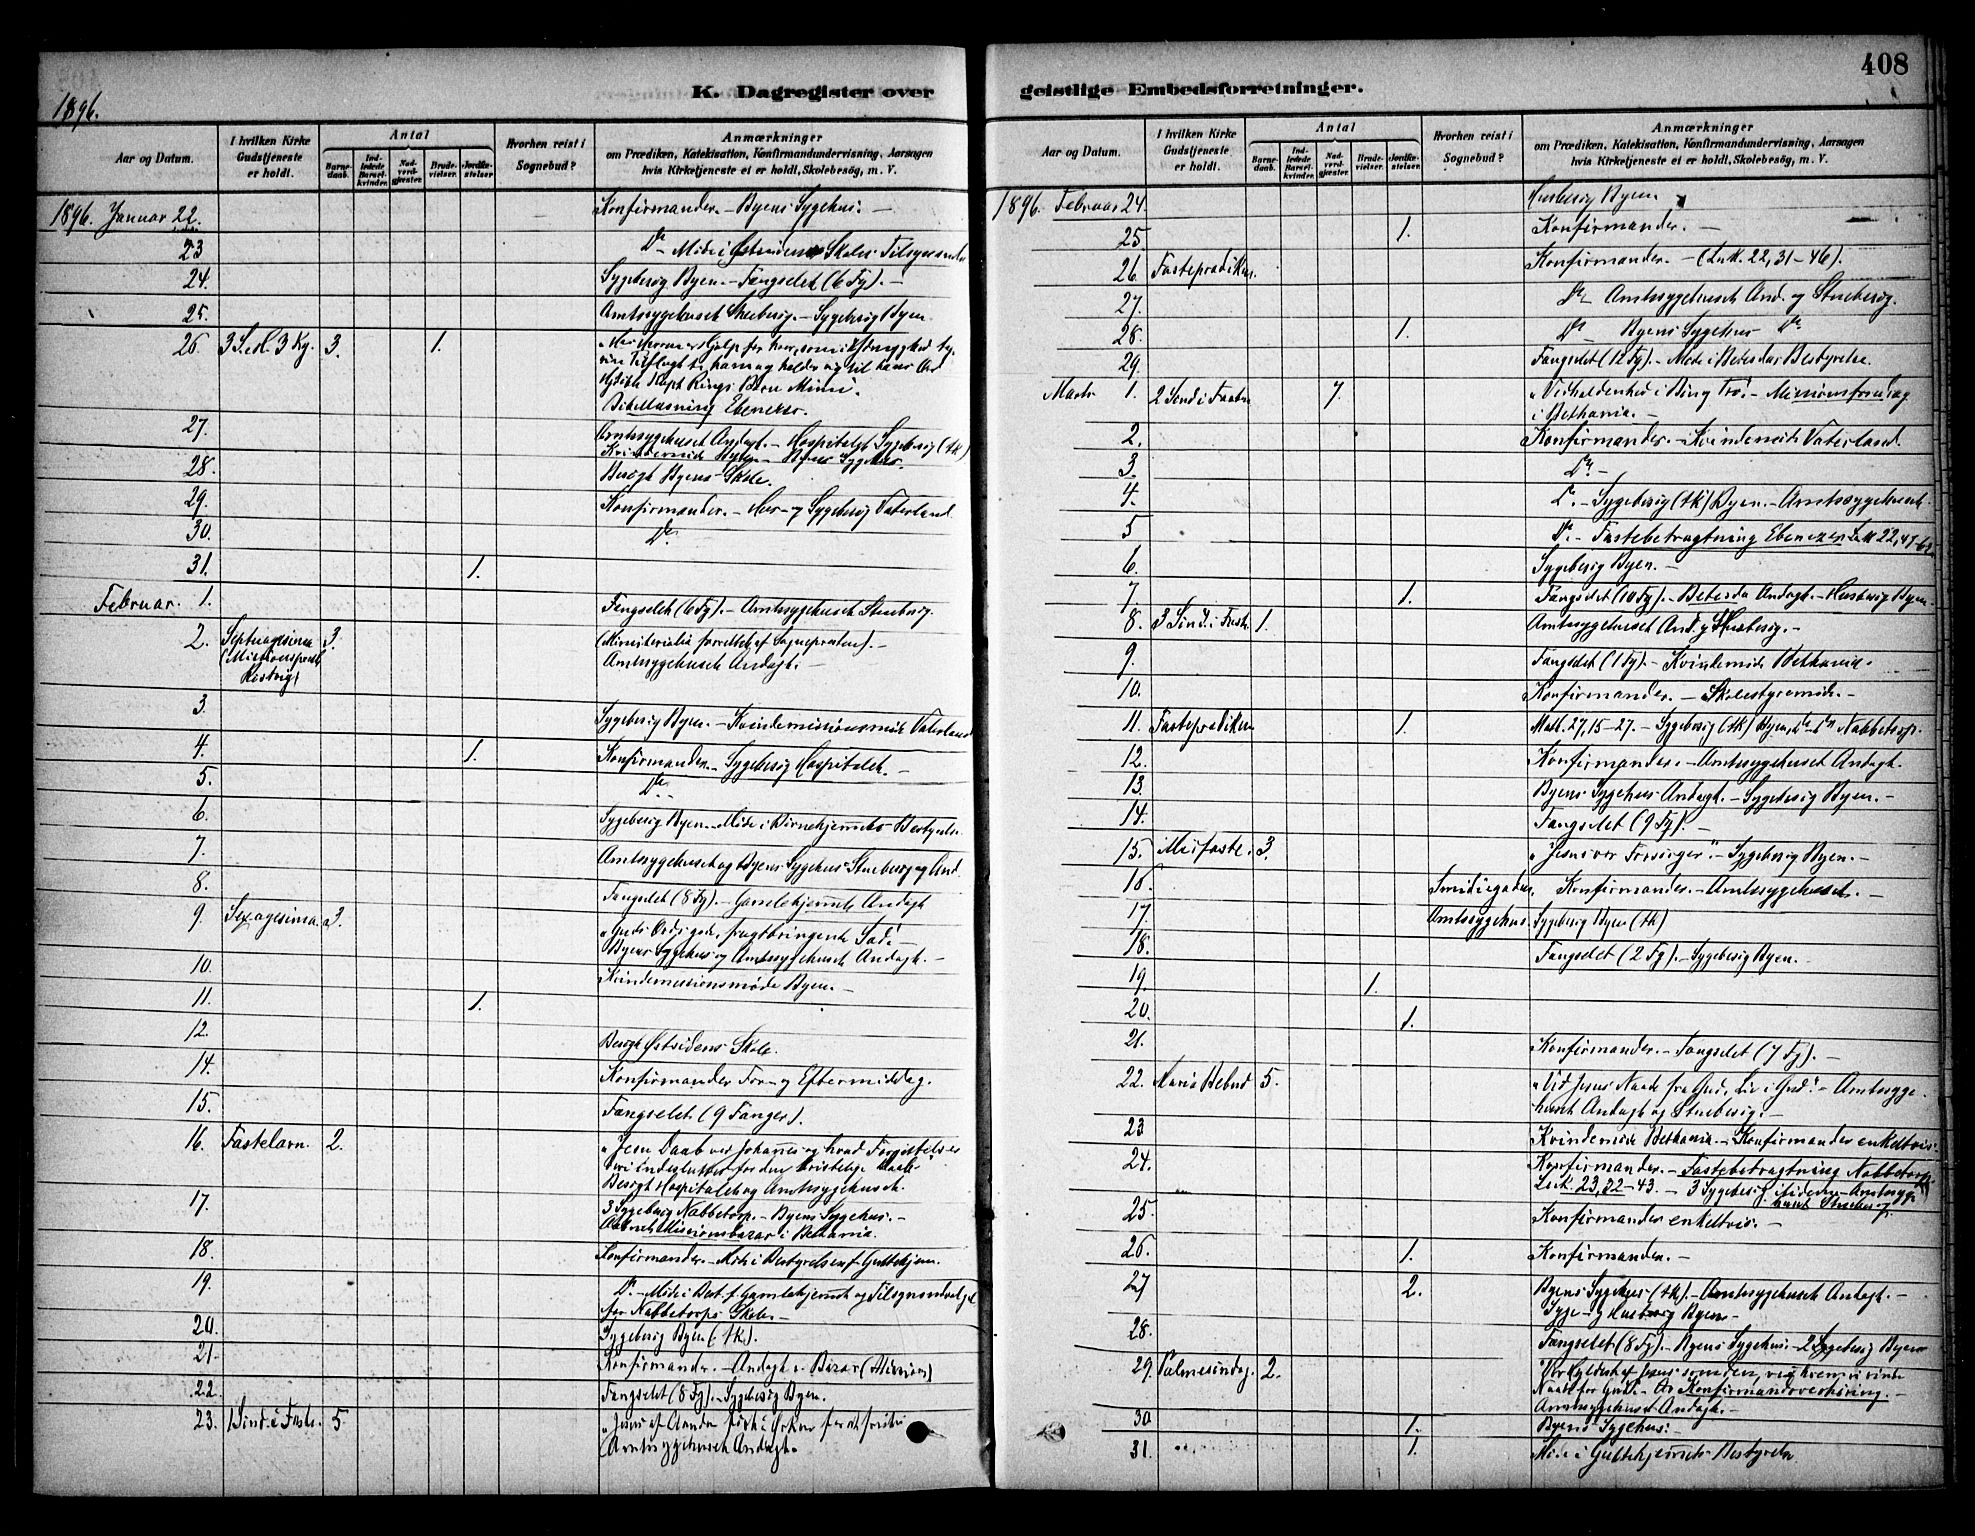 408
1896.
K. Dagregister over geistlige Embedsforretninger.
Aar og Datum. I hvilken Kirke Gudstjeneste er holdt. Antal Barnedaab. Indledede Barselkvinder. Nadverdgjæster. Brudevielser. Jordfæstelser. Hvorhen reist i Sognebud? Anmærkninger om Prædiken, Katekisation, Konfirmandundervisning, Aarsagen hvis Kirketjeneste ei er holdt, Skolebesøg, m. V.
1896. Januar 22. Konfirmander. – Byens Sygehus. –
23 Do – Møde i Østsidens Skoles Tilsyns
24. Sygebesøg Byen. – Fængselet (6 Fg). –
25. Amtssygehuset Stuebesøg. – Sygebesøg Byen
26. 3 S. e. H. 3 Kg. 3. 1.
Bibellæsning Ebenezer.
27. Amtssygehuset Andagt. – Hospitalet Sygebesøg (tk)
Kvindemøde – Byens Sygehus.
28. Besøgt Byens Skole.
29. Konfirmander. – Hus- og Sygebesøg Vaterland
30. Do
31. 1.
Februar. 1. Fængselet (6 Fg). – Amtssygehuset Stuebesøg.
2. Septuagesima 3. (Ministerialia forrettet af Sognepresten). –
(Missionsprest Amtssygehuset Andagt. –
3. Sygebesøg Byen. – Kvindemissionsmøde Vaterland
4. 1. Konfirmander. – Sygebesøg Hospitalet. –
5. Do
6. Sygebesøg Byen. – Møde i Børnehjemmets Bestyrelse.
7. Amtssygehuset og Byens Sygehus Stuebesøg og And.
8. Fængselet (8 Fg). – Gamlehjemmet Andagt
9. Sexagesima. 3. „Guds Ords gode, frugtbringende Sæd“. –
Byens Sygehus og Amtssygehuset Andagt. –
10. Kvindemissionsmøde Byen. –
11. 1.
12. Besøgt Østsidens Skole.
14. Konfirmander For- og Eftermiddag.
15. Fængselet (9 Fanger).
16. Fastelavn. 2. „Jesu Daab ved Johannes og hvad
for den kristelige Daab“
Besøgt Hospitalet og Amtssygehuset.
17. 3 Sygebesøg Nabbetorp. – Byens Sygehus. –
Missionsbazar i Bethania.
18. Konfirmander. – Møde i Bestyrelsen f. Guttehjem.
19. Do – Møde i Best. f. Gamlehjemmet og Tilsynsudvalget
for Nabbetorps Skole. –
20. Sygebesøg Byen (tk).
21. Konfirmander. – Andagt i Bazar (Mission)
22. Fængselet (8 Fg). – Sygebesøg Byen.
23. 1 Sønd. i Faste. 5. „Jesus af Aanden ført i Ørken for at fristes
Amtssygehuset Andagt.
Aar og Datum. I hvilken Kirke Gudstjeneste er holdt. Antal Barnedaab. Indledede Barselkvinder. Nadverdgjæster. Brudevielser. Jordfæstelser. Hvorhen reist i Sognebud? Anmærkninger om Prædiken, Katekisation, Konfirmandundervisning, Aarsagen hvis Kirketjeneste ei er holdt, Skolebesøg, m. V.
1896. Februar 24. Husbesøg Byen
25. 1. Konfirmander. –
26. Fasteprædiken. Konfirmander. – (Luk. 22, 31–46).
27. Do – Amtssygehuset And. og Stuebesøg.
28. 1. Do Byens Sygehus Do
29. Fængselet (12 Fg). – Møde i Betesdas Bestyrelse.
Marts 1. 2 Sønd i Fasten 7. Missionsforedrag
i Bethania. –
2. Konfirmander. – Kvindemøde Vaterland.
3. Do –
4. Do. – Sygebesøg (tk) Byen. – Amtssygehuset
5 Do. – Fastebetragtning Ebenezer Luk 22, 47–62
6. Sygebesøg Byen. –
7 1. Fængselet (10 Fg). – Betesda Andagt. – Husbesøg Byen. –
8. 3 Sønd. i Faste. 1. Amtssygehuset And. og Stuebesøg. –
9. Fængselet (1 Fg). – Kvindemøde Bethania.
10. Konfirmander. – Skolestyremøde. –
11. Fasteprædiken 1. Matt. 27, 15–27. – Sygebesøg (tk) Byen, Do Do Nabbetorp.
12. Konfirmander. – Amtssygehuset Andagt.
13. Byens Sygehus Andagt. – Sygebesøg Byen. –
14. Fængselet (9 Fg). –
15. Midfaste. 3. „Jesus vor Forsørger“. – Sygebesøg Byen. –
16. Smediegaden. Konfirmander. – Amtssygehuset. –
17. Amtssygehus. Sygebesøg Byen (tk)
18. Fængselet (2 Fg). – Sygebesøg Byen. –
19. 1.
20. 1.
21. Konfirmander. – Fængselet (7 Fg). –
22. Mariæ Bebud 5. „Ved Jesus Naade fra Gud, Liv i Gud“. – Amtssyge-
huset Andagt og Stuebesøg. –
23 Kvindemøde Bethania. – Konfirmander enkeltvis.
24. Konfirmander. – Fastebetragtning Nabbetorp
Luk. 23, 32–43. – 3 Sygebesøg – Amtssyge-
huset Stuebesøg
25. Konfirmander enkeltvis. –
26. 1. Konfirmander. –
27 2. Byens Sygehus (tk). – Amtssygehuset Andagt. –
Syge- og Husbesøg Byen –
28. Fængselet (8 Fg). – Byens Sygehus. – 2 Sygebesøg Byen
29. Palmesøndag. 2.
Naade for Gud“. – Konfirmandoverhøring. –
Amtssygehuset Andagt. –
30. 1. Byens Sygehus. –
31. 1. Møde i Guttehjemmets Bestyrelse